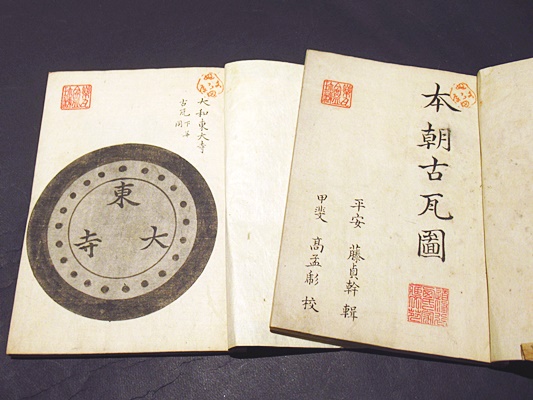 本朝古瓦圖
平安 藤貞幹 輯
甲斐 高孟彪 校
大和東大寺
古瓦下半
東
大
寺